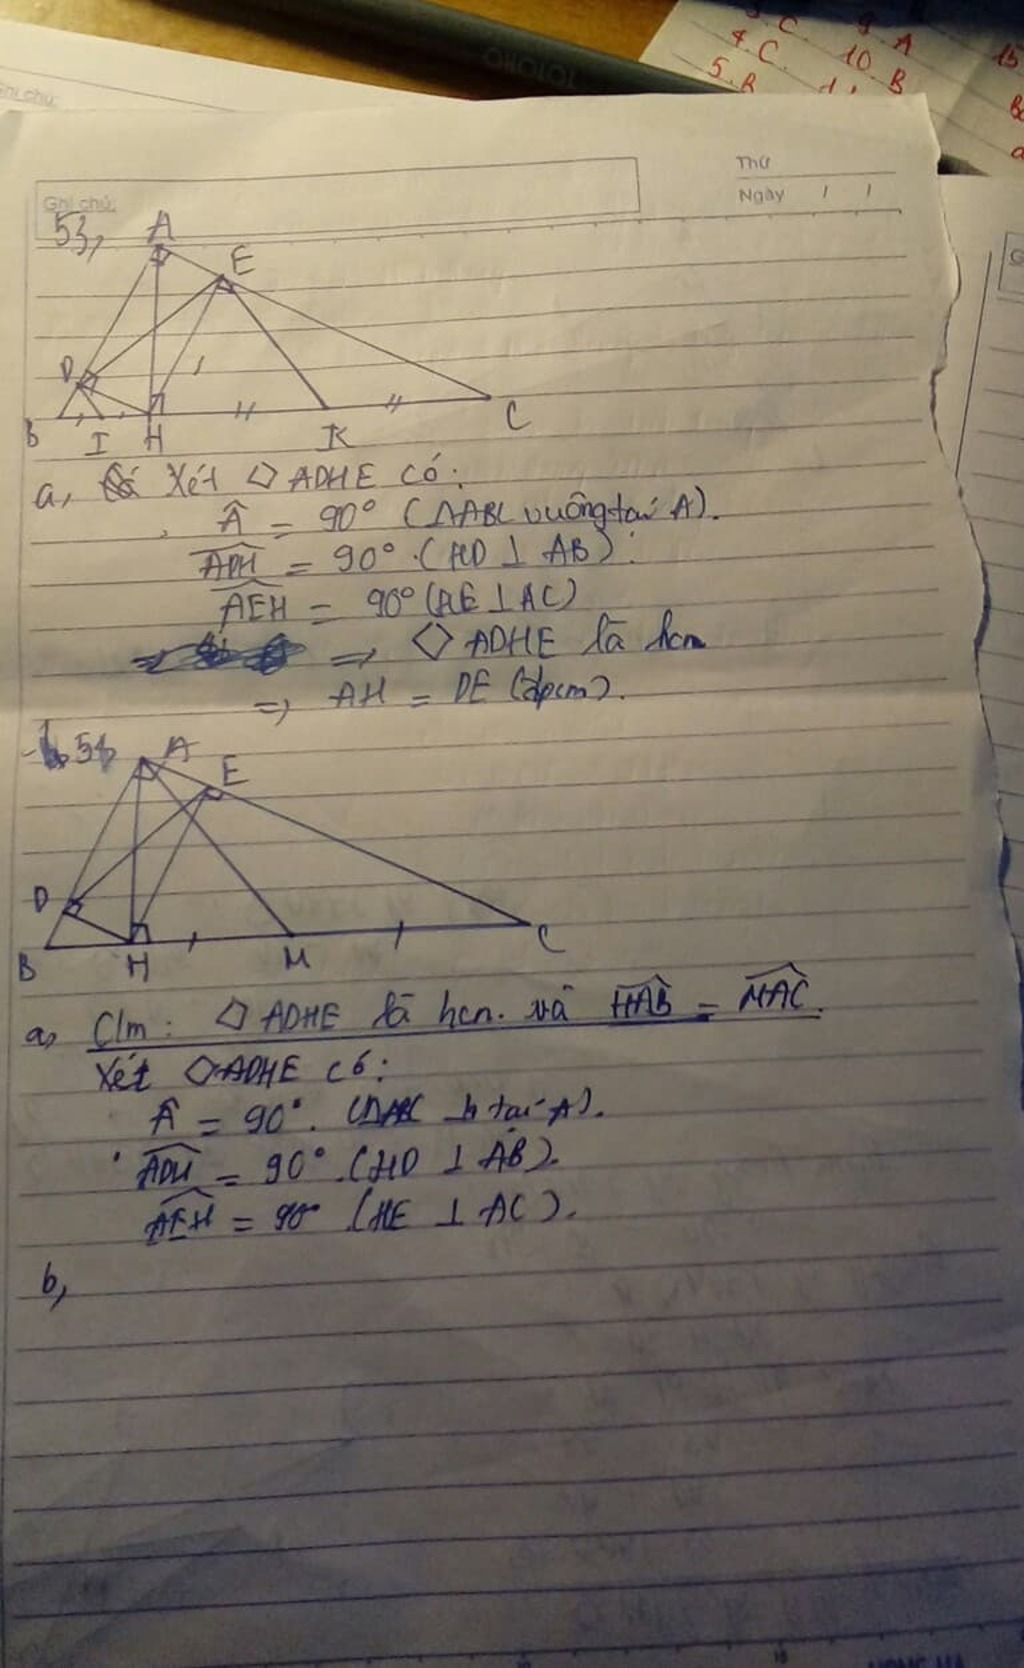 3. C.
9. A
15
4. C.
10. B
5. B
Ghi chú:
Thứ
Ngày / /
Ghi chú:
53,
A
E
D
B I H K C
a, Xét ◇ ADHE có:
Â = 90° (ΔABC vuông tại A).
ADH = 90° (HD ⊥ AB).
AEH = 90° (HE ⊥ AC)
⇒ ◇ ADHE là hcn
⇒ AH = DE (đpcm).
54,
A
E
D
B H M C
a, C/m: ◇ ADHE là hcn. và HAB = MAC.
Xét ◇ ADHE có:
Â = 90°. (ΔABC ⊥ tại A).
ADH = 90° (HD ⊥ AB).
AEH = 90° (HE ⊥ AC).
b,